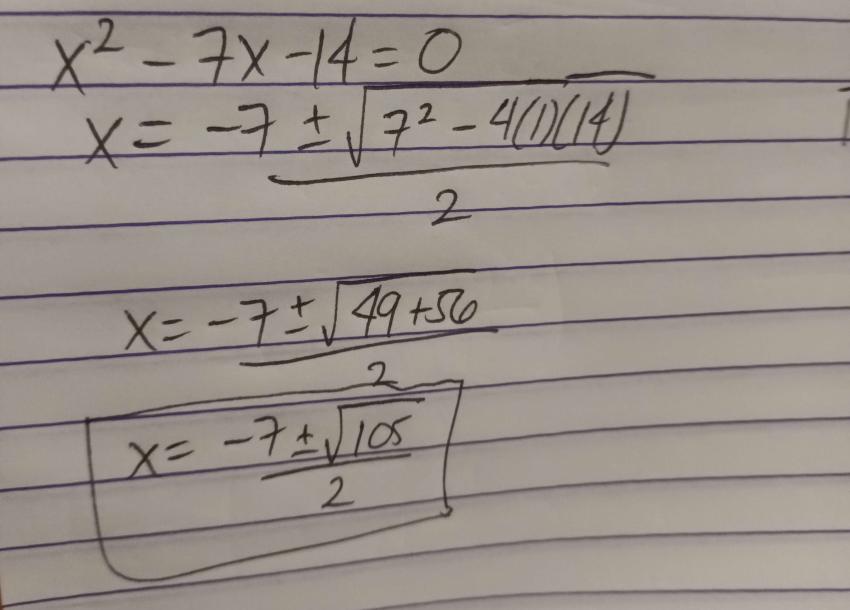 x² - 7x - 14 = 0
x = -7 ± √(7² - 4(1)(14)
2
x = -7 ± √49 + 56
2
x = -7 ± √105
2